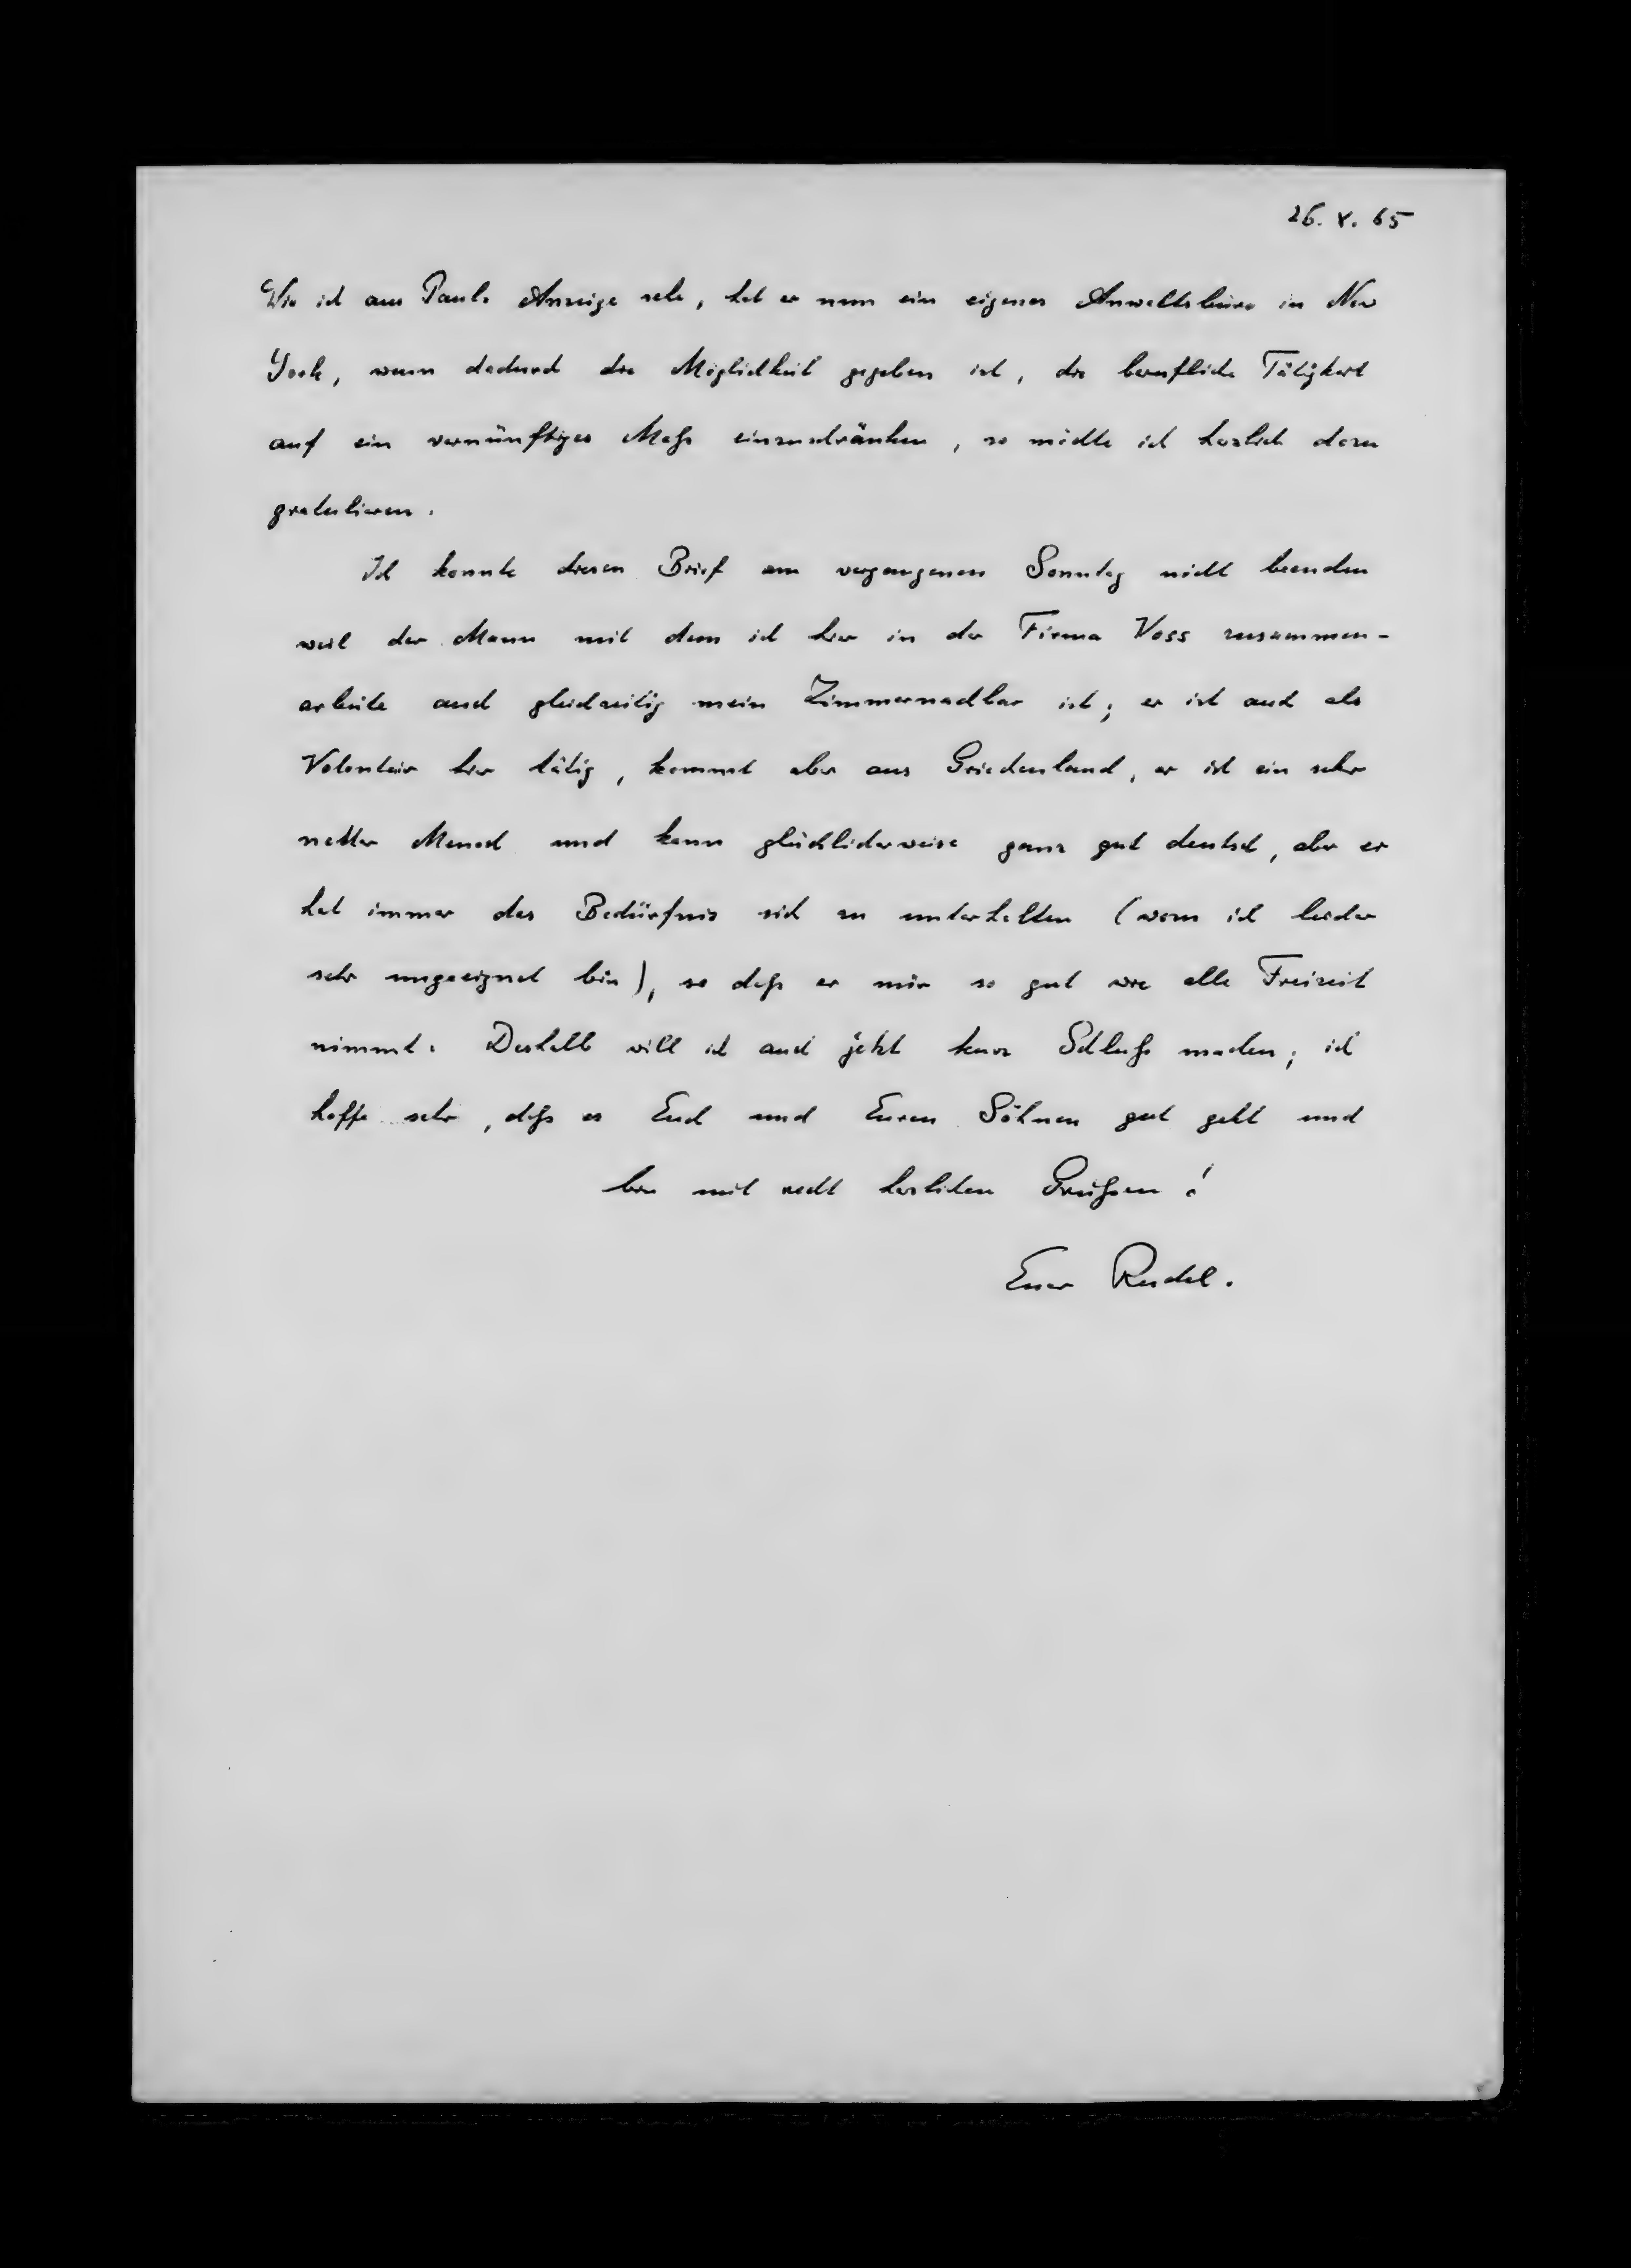 26. V. 65
Wie ich aus Pauls Anzeige sehe, hat er nun ein eigenes Anwaltsbüro in New
York, wenn dadurch die Möglichkeit gegeben ist, die berufliche Tätigkeit
auf ein vernünftiges Maß einzuschränken, so möchte ich herzlich dazu
gratulieren.
Ich konnte diesen Brief am vergangenen Sonntag nicht beenden
weil der Mann mit dem ich hier in der Firma Voss zusammen-
arbeite auch gleichzeitig mein Zimmernachbar ist; er ist auch als
Volontair hier tätig, kommt aber aus Griechenland, er ist ein sehr
netter Mensch und kann glücklicherweise ganz gut deutsch, aber er
hat immer das Bedürfnis sich zu unterhalten (wozu ich leider
sehr ungeeignet bin), so daß er mir so gut wie alle Freizeit
nimmt. Deshalb will ich auch jetzt kurz Schluß machen; ich
hoffe sehr, daß es Euch und Euren Söhnen gut geht und
bin mit recht herzlichen Grüßen!
Euer Rudel.